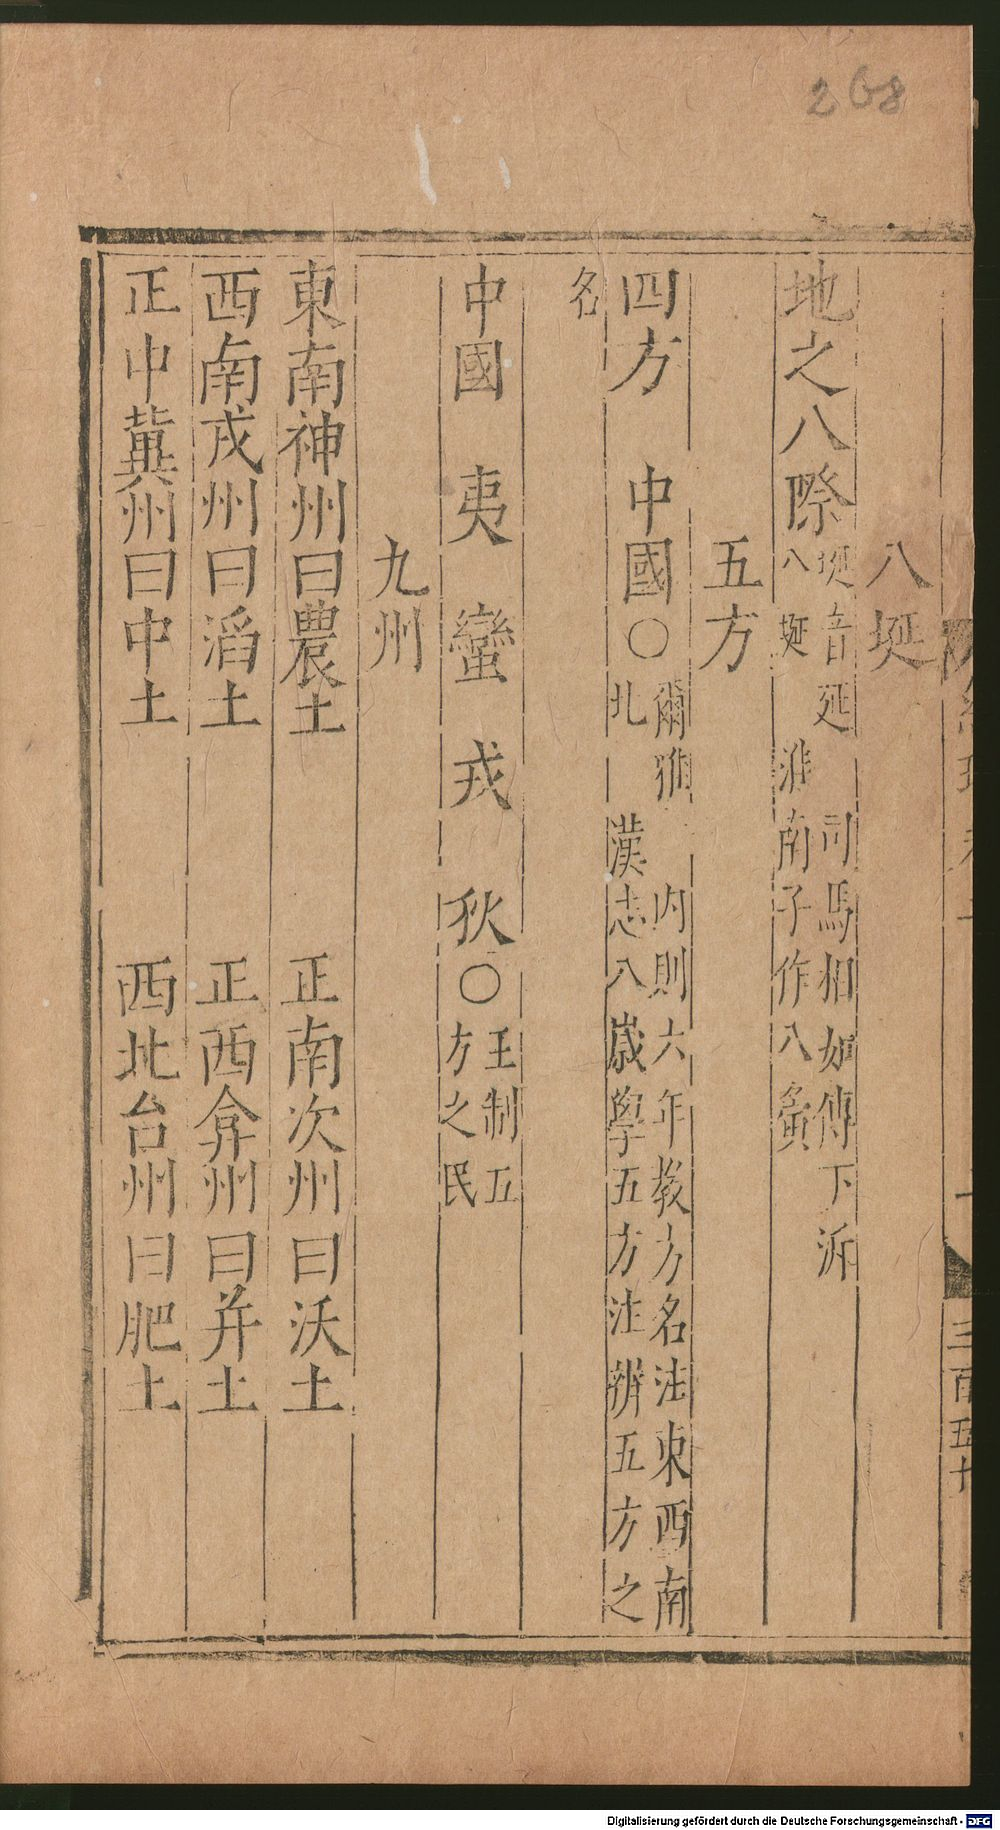 268
八埏
地之八際 埏音延 司馬相如傳下泝
八埏 淮南子作八夤
五方
四方 中國〇 爾雅 内則六年教方名注東西南
北 漢志八歲學五方注辨五方之
名
中國 夷 蠻 戎 狄〇 王制五
方之民
九州
東南神州曰農土 正南次州曰沃土
西南戎州曰滔土 正西弇州曰并土
正中冀州曰中土 西北台州曰肥土
三百五十
Digitalisierung gefördert durch die Deutsche Forschungsgemeinschaft - DFG